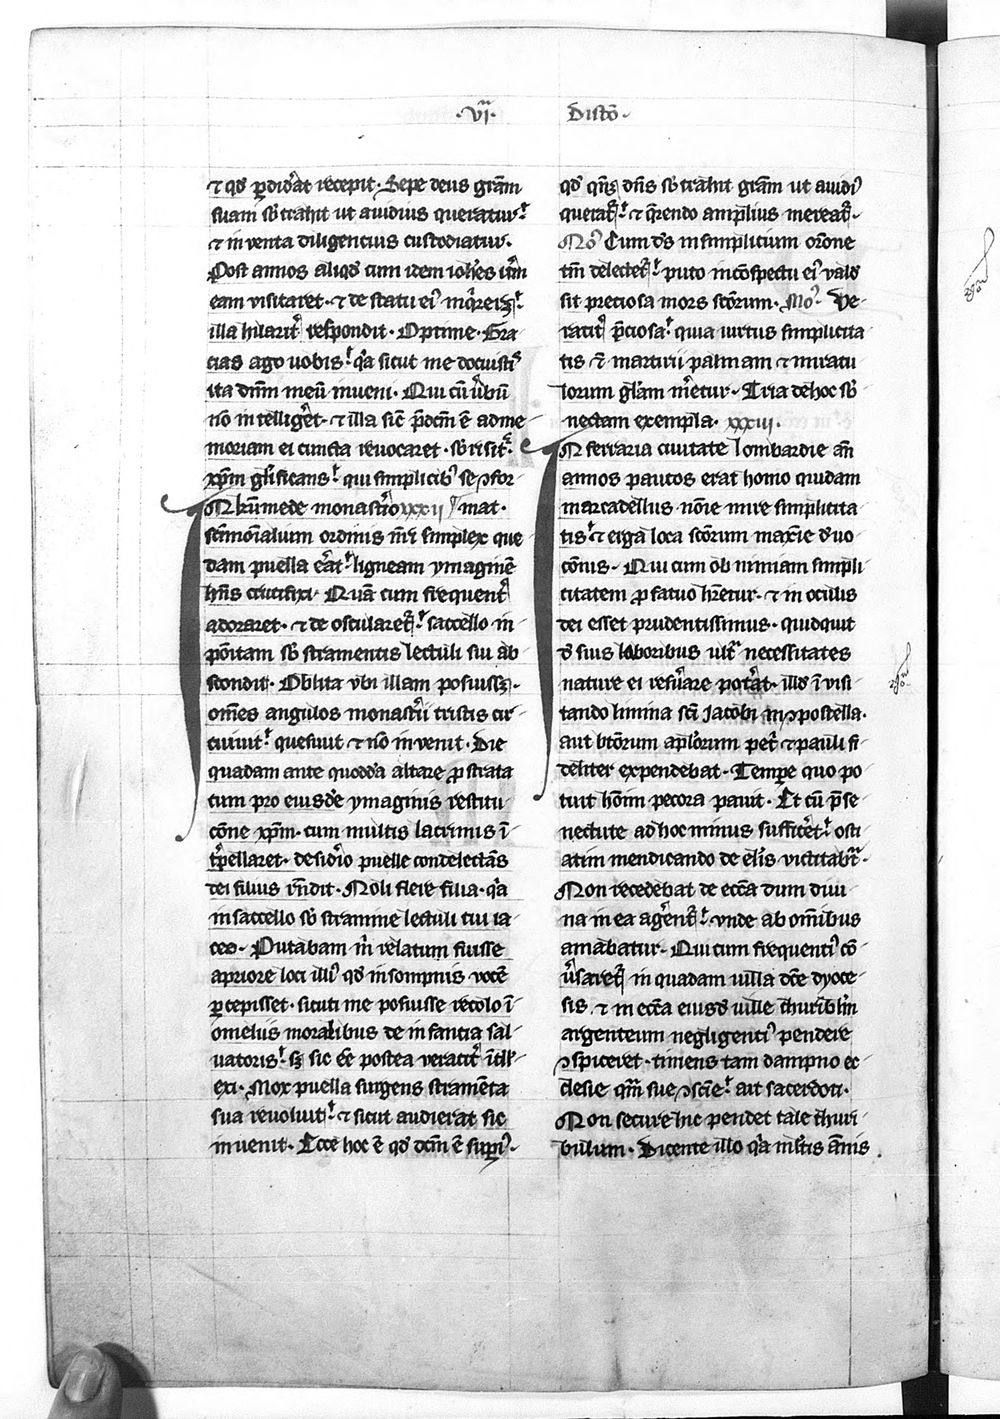 ·vi·
Disto·
⁊ qd' ꝑdid'at recepit· Sepe deus gr̄am
suam sb' trahit ut auidius queratur
⁊ inuenta diligencius custodiatur·
Post annos aliqd' cum idem ioh'es it'm
eam visitaret· ⁊ de statu ei'
illa hilarit' respondit· Optime· Gra
cias ago uobis q'a sicut me docuistis
ita dn̄m meū inueni· Qui cū v'bū
nō intelligeret· ⁊ illa sic' p̄dcm̄ ē ad me
moriam ei cuncta reuocaret· sb' risit
xp̄m gl'ificans qui simplicib' se ↄfor
mat· xxxii
In monast'io
sc̄imonialium ordinis nr̄i simplex que
dam puella erat ligneam ymaginē
hn̄s crucifixi· Quā cum frequent'
adoraret· ⁊ de oscularet' saccello in
pōitam sb' stramentis lectuli sui ab
scondit· Oblita vbi illam posuiss⁊·
om̄es angulos monast'ii tristis cir
cuiuit quesiuit ⁊ nō inuenit· Die
quadam ante quodda altare ꝓstrata
cum pro eiusdē ymaginis restitu
cōne xp̄m· cum multis lacrimis ī
t'pellaret· desid'io puelle condelectās
dei filius rn̄dit· Noli flere filia· q'a
in saccello sb' stramine lectuli tui ia
ceo· Putabam m̄ relatum fuisse
a priore loci illi' qd' in sompnis vocē
ꝑcepisset· sicuti me posuisse recolo ī
omeliis moralibus de infancia sal
uatoris s⁊ sic ēē postea veracit' ītll'
exi· Mox puella surgens stramēta
sua reuoluit ⁊ sicut audierat sic
inuenit· Ecce hoc ē qd' dcm̄ ē supi'·
qd' qn̄q⁊ dn̄s sb' trahit gr̄am ut auidi'
querat' ⁊ q̄rendo amplius mereat'·
No' Cum d's in simplicium or̄one
tm̄ delectet' puto in cōspectu ei' vald'
sit preciosa mors sc̄orum· Mo'· Ve
racit' p̄ciosa quia uirtus simplicita
tis ⁊ martirii palmam ⁊ miracu
lorum gl'am m̄etur· Tria de hoc sb'
nectam exempla· xxxiii·
In ferraria ciuitate lombardie an̄
annos paucos erat homo quidam
marcadellus nōie mire simplicita
tis ⁊ erga loca sc̄orum maxīe d'uo
cōnis· Qui cum ob nimiam simpli
citatem ꝓ fatuo h̄retur· ⁊ in oculis
dei esset prudentissimus· quidquit
d' suis laboribus ult' necessitates
nature ei reseruare pot'at· illd' ī visi
tando limina sc̄i Jacobi in ↄpostella·
aut bt̄orum ap̄lorum pet' ⁊ pauli fi
deliter expendebat· Tempe quo po
tuit hōim pecora pauit· Et cū p̄se
nectute ad hoc minus sufficeret osti
atim mendicando de el'is victitabat'·
Non recedebat de ecc̄a dum diui
na in ea agerent' vnde ab om̄ibus
amabatur· Qui cum frequenti' cō
u'saret' in quadam uilla dc̄e dyoce
sis· ⁊ in ecc̄a eiusd' uille thuribl'm
argenteum negligenti' pendere
ↄspiceret· timens tam dampno ec
clesie qm̄ sue ↄscīe ait sacerdoti·
Non secure hic pendet tale thuri
bulum· Dicente illo q'a ml'tis annis